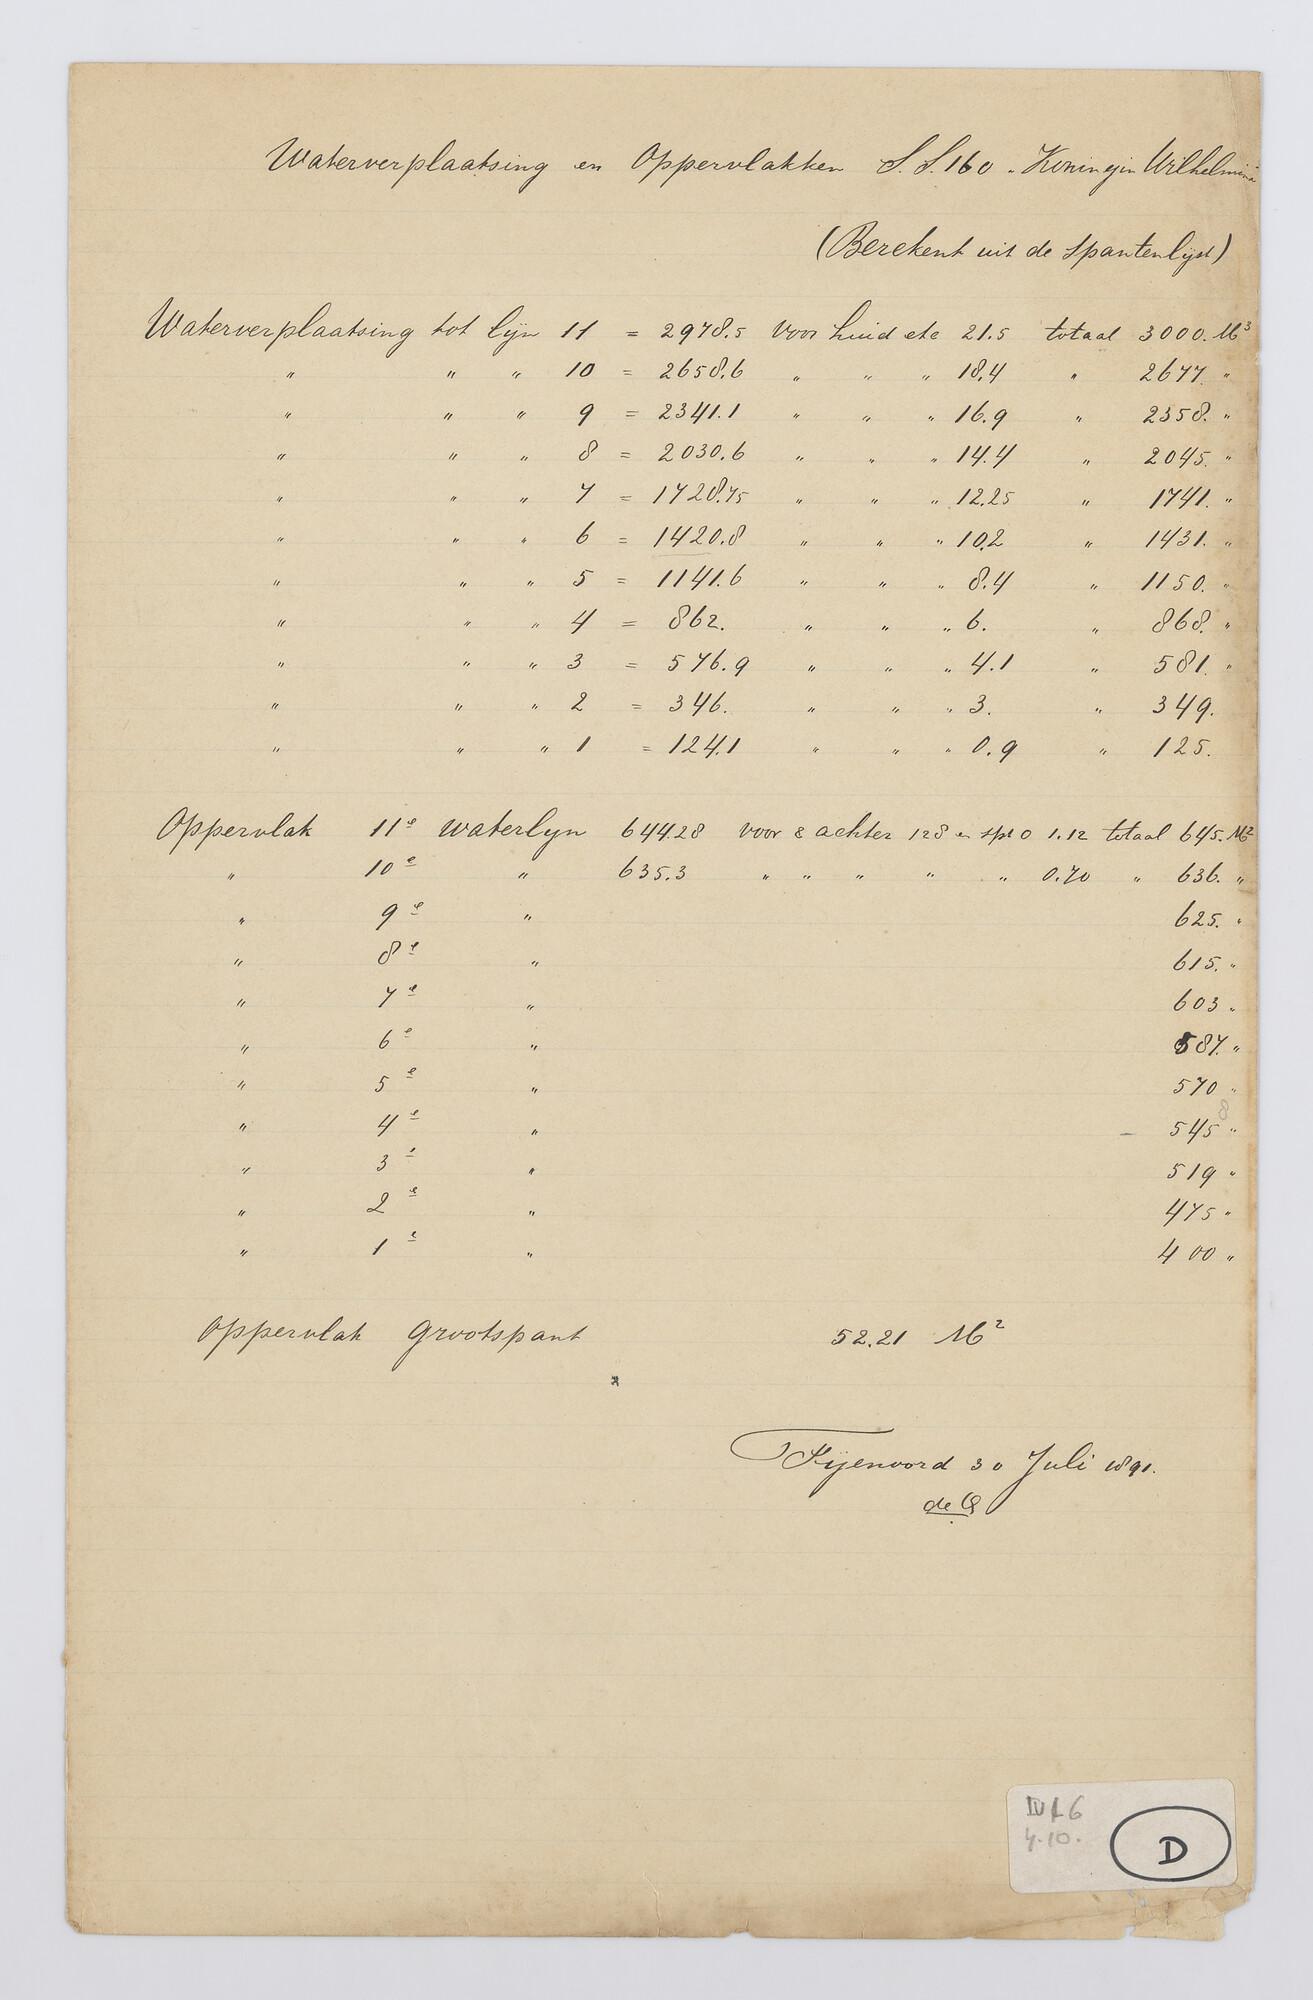 Waterverplaatsing en Oppervlakken S.S. 160 „ Koningin Wilhelmina
(Berekent uit de spantenlijst)
Waterverplaatsing tot lijn 11 = 2978.5 voor huid etc 21.5 totaal 3000. M³
" " " 10 = 2658.6 " " " 18.4 " 2677. "
" " " 9 = 2341.1 " " " 16.9 " 2358. "
" " " 8 = 2030.6 " " " 14.4 " 2045. "
" " " 7 = 1728.75 " " " 12.25 " 1741. "
" " " 6 = 1420.8 " " " 10.2 " 1431. "
" " " 5 = 1141.6 " " " 8.4 " 1150. "
" " " 4 = 862. " " " 6. " 868. "
" " " 3 = 576.9 " " " 4.1 " 581. "
" " " 2 = 346. " " " 3. " 349.
" " " 1 = 124.1 " " " 0.9 " 125.
Oppervlak 11e waterlijn 644.28 voor & achter 128 en spt 0 1.12 totaal 645. M²
" 10e " 635.3 " " " " " 0.70 " 636. "
" 9e " 625. "
" 8e " 615. "
" 7e " 603 "
" 6e " 587. "
" 5e " 570 "
8
" 4e " – 545 "
" 3e " 519 "
" 2e " 475 "
" 1e " 400 "
Oppervlak grootspant 52.21 M²
Fijenoord 30 Juli 1891.
de Q
4.10.
D